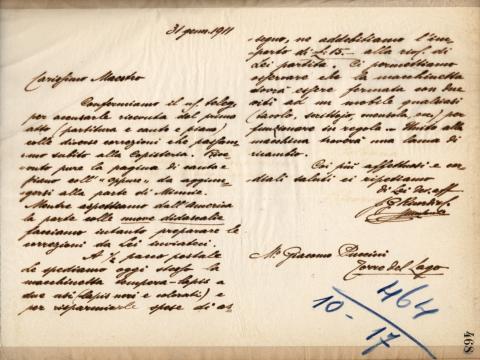 31 genn. 1911
Carissimo Maestro
Confermiamo il ns/ teleg.
per accusarle ricevuta del primo
atto (partitura e canto e piano)
colle diverse correzioni che passiamo
subito alla Copisteria. Rice-
vuto pure la pagina di canto e
piano coll' "oppure" da aggiun-
gersi alla parte di Minnie.
Mentre aspettiamo dall'America
la parte colle nuove didascalie
facciamo intanto preparare le
correzioni da Lei inviateci.
A 1/2 pacco postale
Le spediamo oggi stesso la
macchinetta tempera-lapis a
due usi (lapis neri e colorati) e
per risparmiarle spese di as-
segno, ne addebitiamo l'im-
porto di L. 15.— alla
di
Lei partita. Ci permettiamo
osservare che la macchinetta
dovrà essere fermata con due
viti ad un mobile qualsiasi
(tavolo, scrittoio, mensola, ecc) per
funzionare in regola. — Unito alla
macchina troverà una lama di
ricambio.
Coi più affettuosi e cor-
diali saluti ci ripetiamo
di Lei dev. aff
Mo Giacomo Puccini
Torre del Lago
464
10 - 17
468